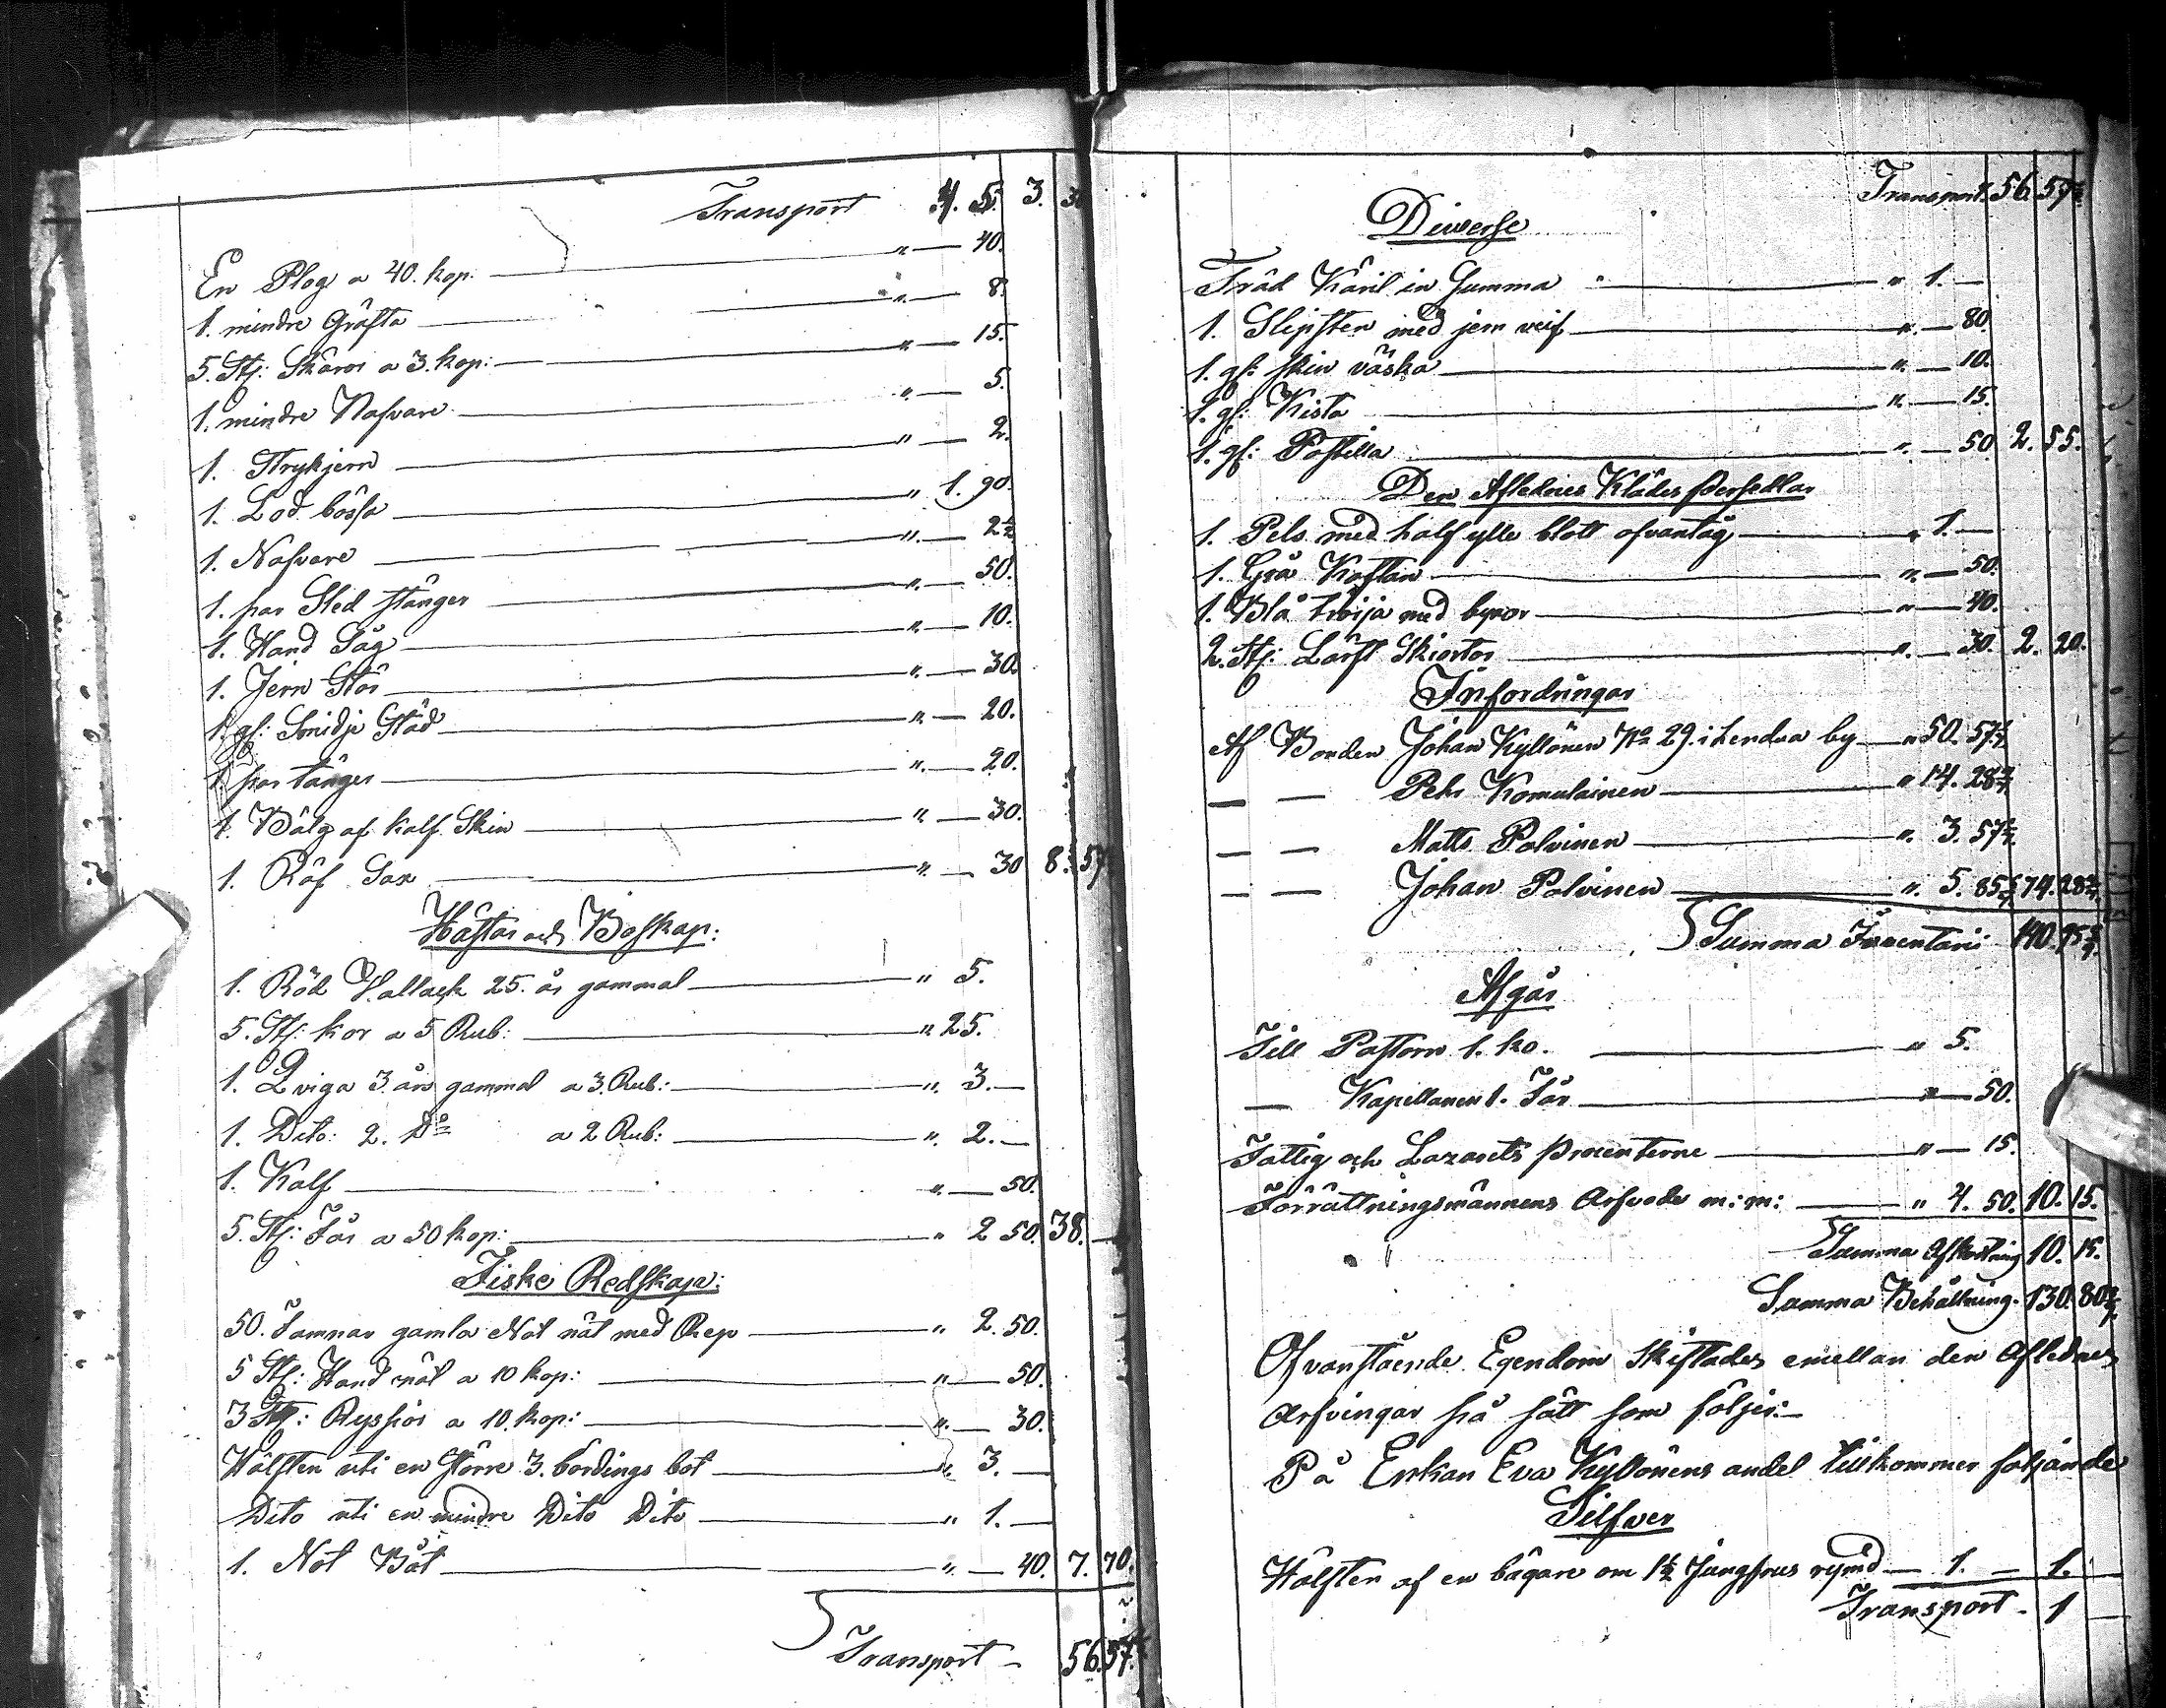 Transport 4. 5. 3. 30
En Plog a 40. kop: " — 40.
1. mindre Gräfta " — 8.
5. St: Skäror a 3. kop: " — 15.
1. mindre Nafvare " — 5.
1. Strykjern " — 2.
1. Lod bössa " 1. 90.
1. Nafvare " — 2½
1. par Sled stänger " — 50.
1. Hand Såg " — 10.
1. Jern Stör " — 30.
1. gl: Smidje Städ " — 20.
1. par tänger " — 20.
1. Bälg af kalf Skin " — 30.
1. Räf Sax " — 30 8. 57½
Hästar och Boskap:
1. Röd Vallack 25. år gammal " 5.
5. St: kor a 5 Rub: " 25.
1. Qviga 3. års gammal a 3. Rub: " 3. —
1. Dito: 2. Do a 2 Rub: " 2. —
1. Kalf " — 50.
5. St: Får a 50 kop: " 2 50. 38. —
Fiske Redskap:
50. Famnar gamla Not nät med Rep " 2. 50.
5 St: Hand nät a 10 kop: " — 50.
3 St: Ryssior a 10. kop: " — 30.
Hälften uti en större 3. bördings båt " 3. —
Dito uti en mindre Dito Dito " 1. —
1. Not Båt " — 40. 7. 70.
Transport — 56. 57½
Transport. 56. 57½
Diverse
Träd Käril in Summa " 1. —
1. Slipsten med jern veif " — 80.
1. gl: skin väska " — 10.
1. gl: Kista " — 15.
1. gl: Postilla " — 50 2. 55.
Den Aflednes Klädes persedlar
1. Pels med half ylle blått ofvantåg " 1. —
1. Grå Kaftan " — 50.
1. Blå tröija med byxor " — 40.
2. St: Lärft Skiortor " — 30. 2. 20.
Infordringar
Af Bonden Johan Kyllönen No 29. i Lendua by " 50. 57 1/7
— — Pehr Komulainen " 14. 28 4/7
— — Matts Polvinen " 3. 57 1/7
— — Johan Polvinen " 5. 85 5/7 74. 28 4/7
Summa Inventarii 140. 95
Afgår
Till Pastorn 1. ko. " 5.
— Kapellanen 1. Får " — 50.
Fattig och Lazaretts procenterne " — 15.
Förrättningsmännens Arfvode m: m: " 4. 50. 10. 15.
Summa Afkortning 10. 15.
Summa Behållning. 130. 80
Ofvanstående Egendom skiftades emellan den Aflednes
Arfvingar på sätt som följer:—
På Enkan Eva Kyllönens andel tillkommer följande
Silfver
Hälften af en bägare om 1½ Jungfrus rymd — 1. — 1. —
Transport — 1 —